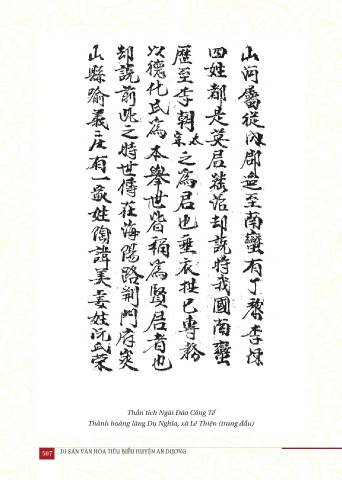 山河屬從
至南蠻有丁黎李陳
四姓都是英君
却説時我國南蠻
歷至李朝太宗之為君也垂衣拱己專務
以德化民為本舉世皆稱為賢君者也
却説前此之時世傳在海陽路荆門府
山縣喻義庄有一家姓陶諱美妻姓阮氏榮
Thần tích Ngài Đào Công Tế
Thành hoàng làng Dụ Nghĩa, xã Lê Thiện (trang đầu)
507 DI SẢN VĂN HÓA TIÊU BIỂU HUYỆN AN DƯƠNG